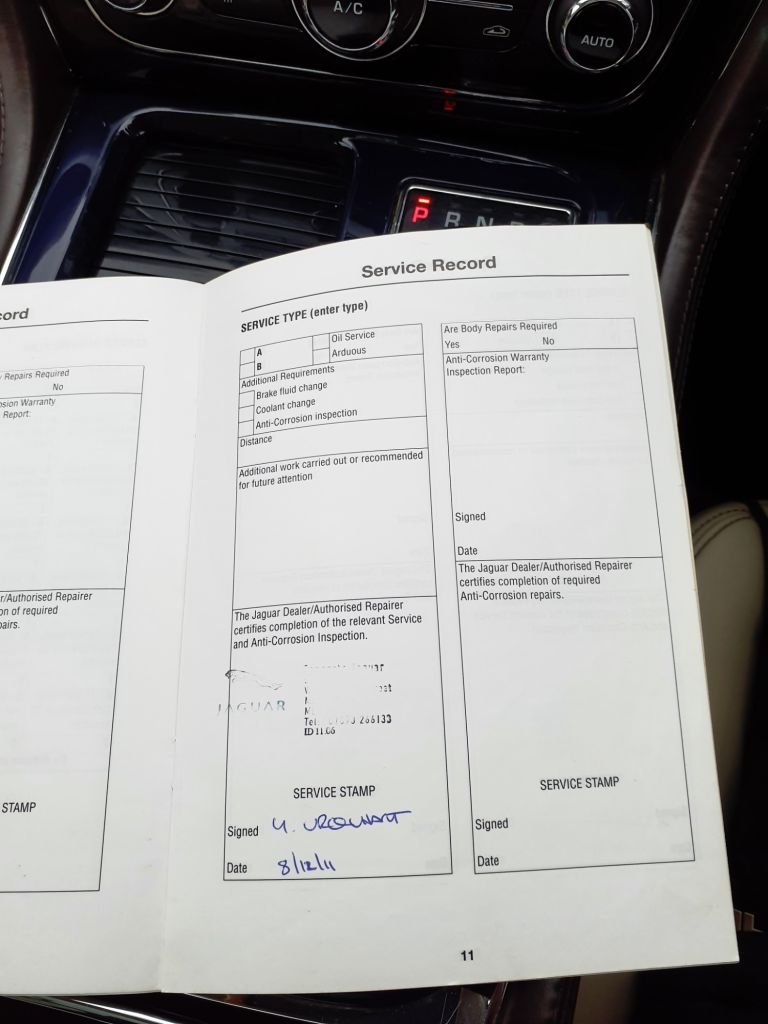 A/C
AUTO
P R N
ord
Repairs Required
No
osion Warranty
Report:
r/Authorised Repairer
on of required
pairs.
STAMP
Service Record
SERVICE TYPE (enter type)
A
B
Oil Service
Arduous
Additional Requirements
Brake fluid change
Coolant change
Anti-Corrosion inspection
Distance
Additional work carried out or recommended
for future attention
The Jaguar Dealer/Authorised Repairer
certifies completion of the relevant Service
and Anti-Corrosion Inspection.
JAGUAR
Tel. 266133
SERVICE STAMP
Signed U. URQUHART
Date 8/12/11
Are Body Repairs Required
Yes No
Anti-Corrosion Warranty
Inspection Report:
Signed
Date
The Jaguar Dealer/Authorised Repairer
certifies completion of required
Anti-Corrosion repairs.
SERVICE STAMP
Signed
Date
11